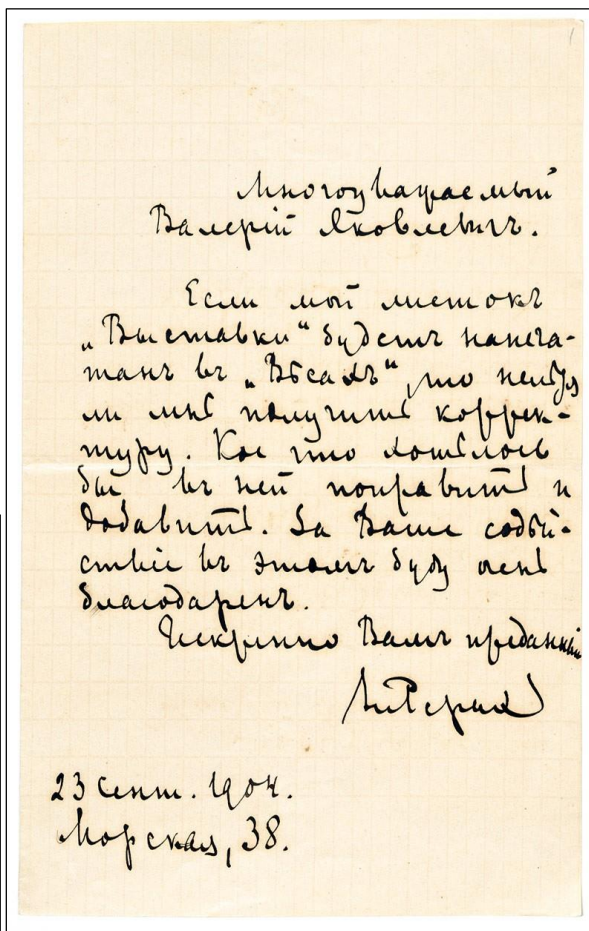 Многоуважаемый
Валерій Яковлевичъ.
Если мой листокъ
„Выставки“ будетъ напеча-
танъ въ „Вѣсахъ“, то нельзя
ли мнѣ получить коррек-
туру. Кое что хотѣлось
бы въ ней поправить и
добавить. За Ваше содѣй-
ствіе въ этомъ буду очень
благодаренъ.
Искренно Вамъ преданный
НРерих
23 сент. 1904.
Морская, 38.